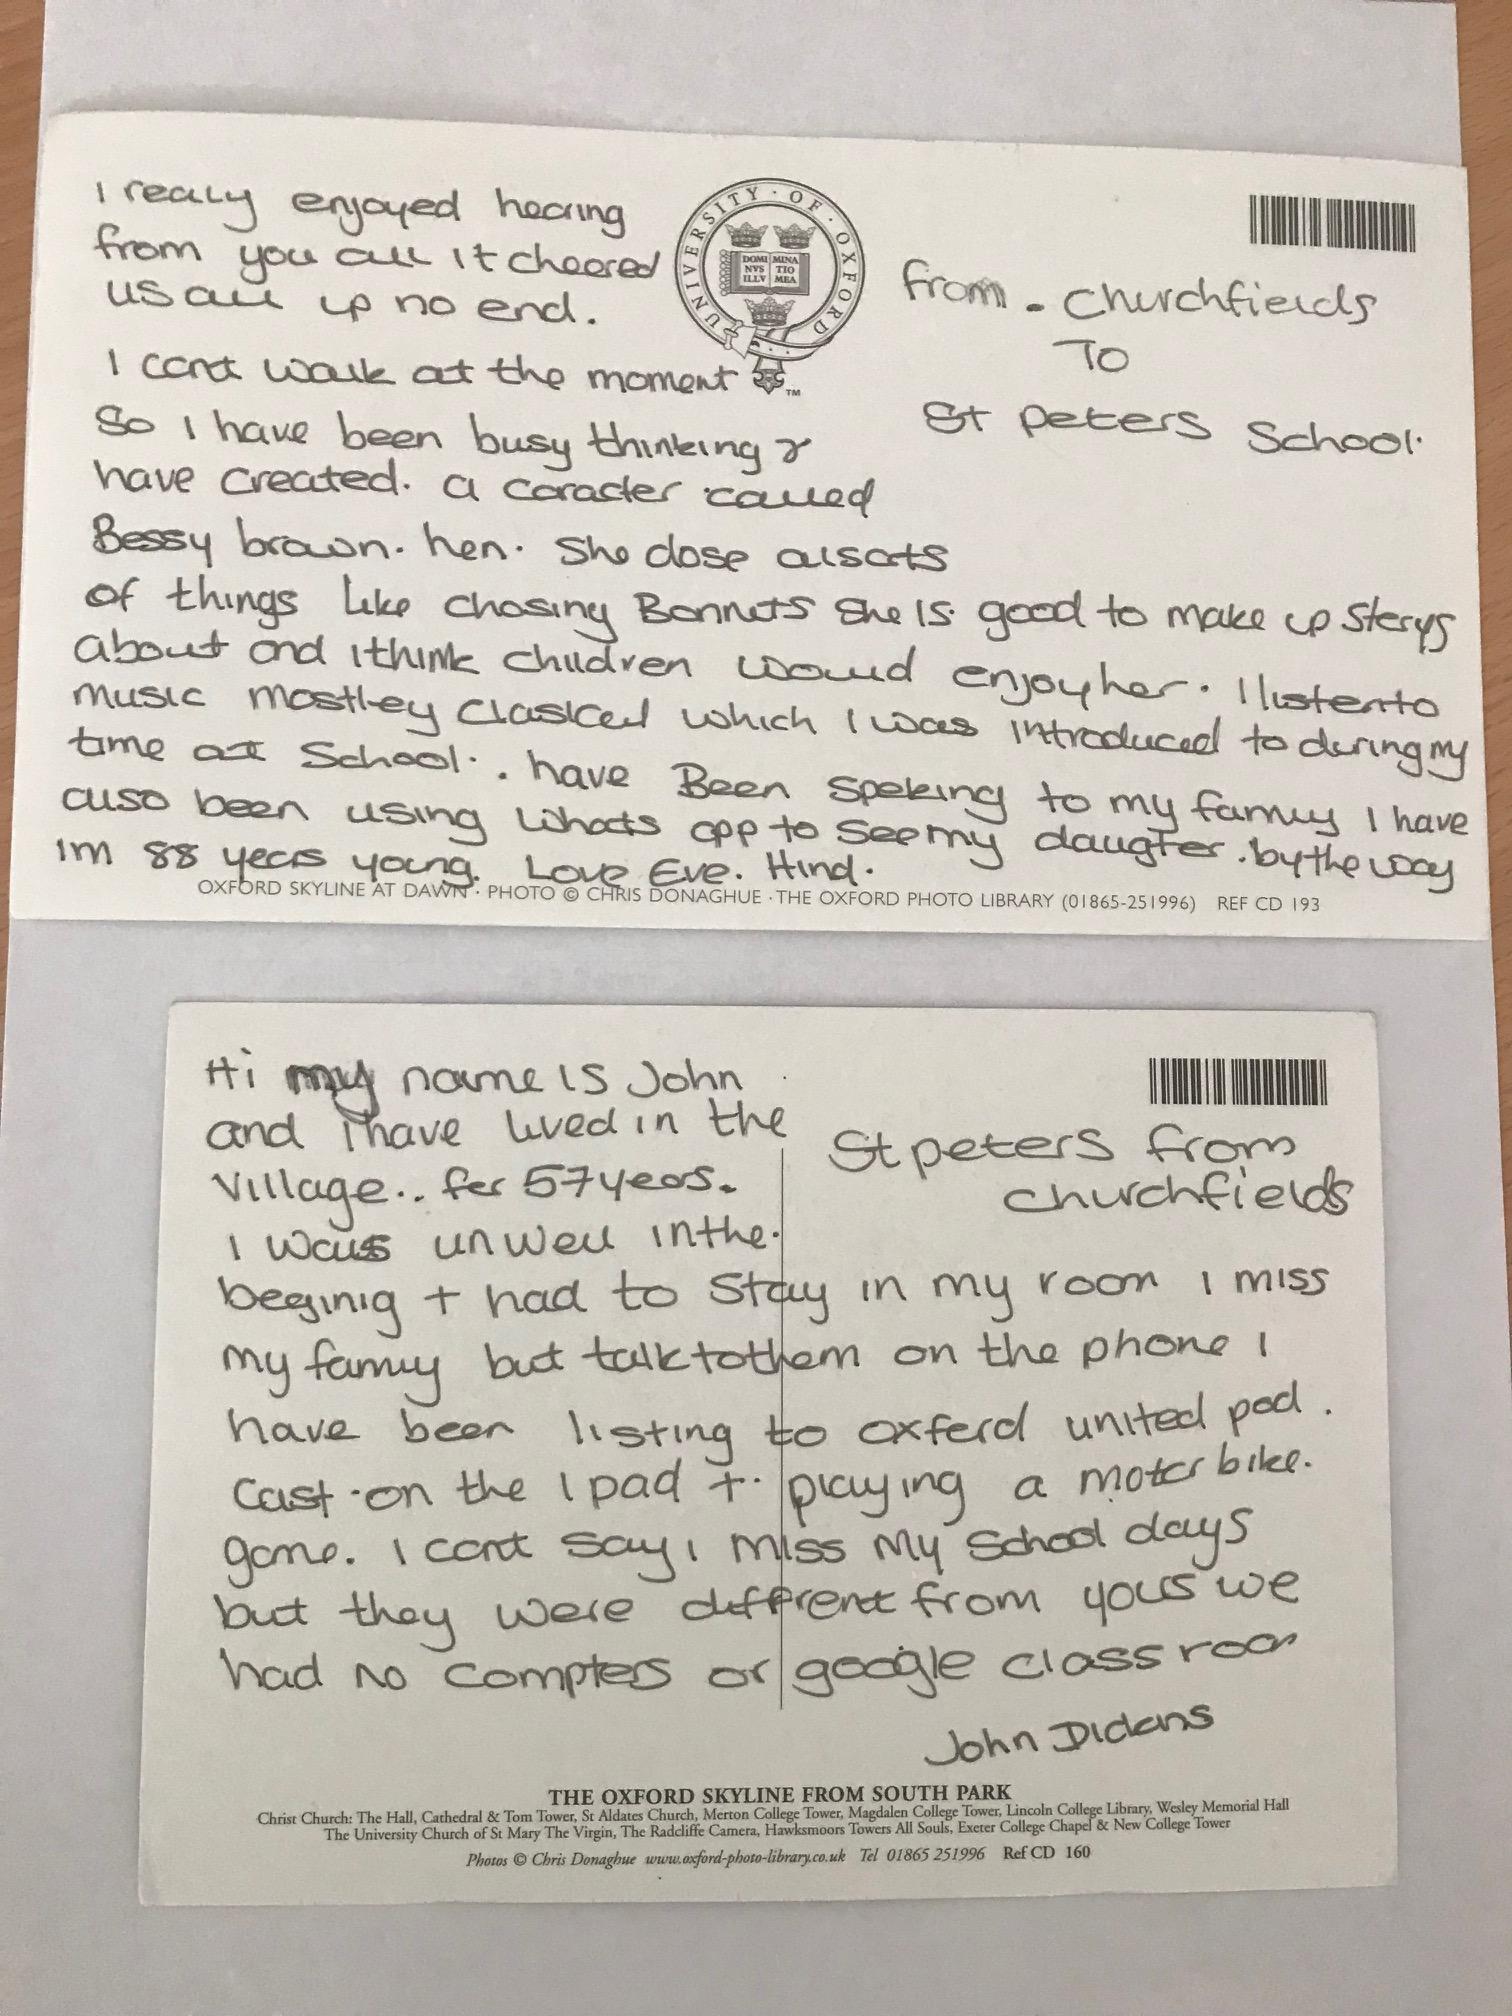 I realy enjoyed hearing
from you all it cheered
us all up no end.
I cant walk at the moment
So I have been busy thinking &
have created. a caracter called
Bessy brown. hen. She dose alsorts
of things like chasing Bonnets She is good to make up storys
about and I think children would enjoy her. I listen to
music mostley clasical which I was introduced to during my
time at School. . have Been speking to my family I have
also been using Whats app to see my daugter. by the way
Im 88 years young. Love Eve. Hind.
UNIVERSITY · OF · OXFORD
DOMI MINA
NVS TIO
ILLV MEA
TM
from - Churchfields
To
St peters School.
OXFORD SKYLINE AT DAWN · PHOTO © CHRIS DONAGHUE · THE OXFORD PHOTO LIBRARY (01865-251996) REF CD 193
Hi my name is John
and I have lived in the
Village.. for 57 years.
I was unwell in the.
beginig + had to Stay in my room I miss
my family but talk to them on the phone I
have been listing to oxford united pod.
cast on the I pad + playing a motor bike.
game. I cant say I miss my School days
but they were diffrent from yous we
had no compters or google class room
John Dickens
St peters from
Churchfields
THE OXFORD SKYLINE FROM SOUTH PARK
Christ Church: The Hall, Cathedral & Tom Tower, St Aldates Church, Merton College Tower, Magdalen College Tower, Lincoln College Library, Wesley Memorial Hall
The University Church of St Mary The Virgin, The Radcliffe Camera, Hawksmoors Towers All Souls, Exeter College Chapel & New College Tower
Photos © Chris Donaghue www.oxford-photo-library.co.uk Tel 01865 251996 Ref CD 160